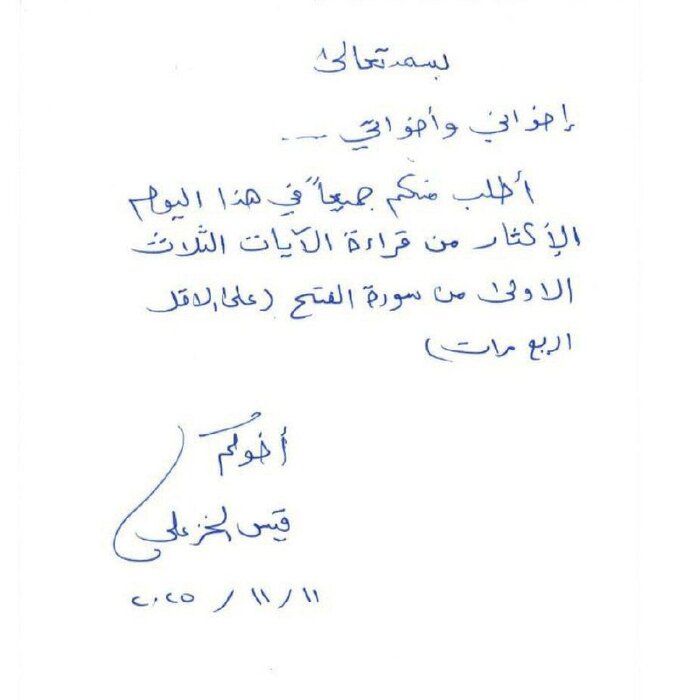 بسمه تعالى
إخواني وأخواتي ...
أطلب منكم جميعاً في هذا اليوم
الإكثار من قراءة الآيات الثلاث
الاولى من سورة الفتح (على الاقل
اربع مرات)
أخوكم
قيس الخزعلي
٢٠٢٥ / ١١ / ١١